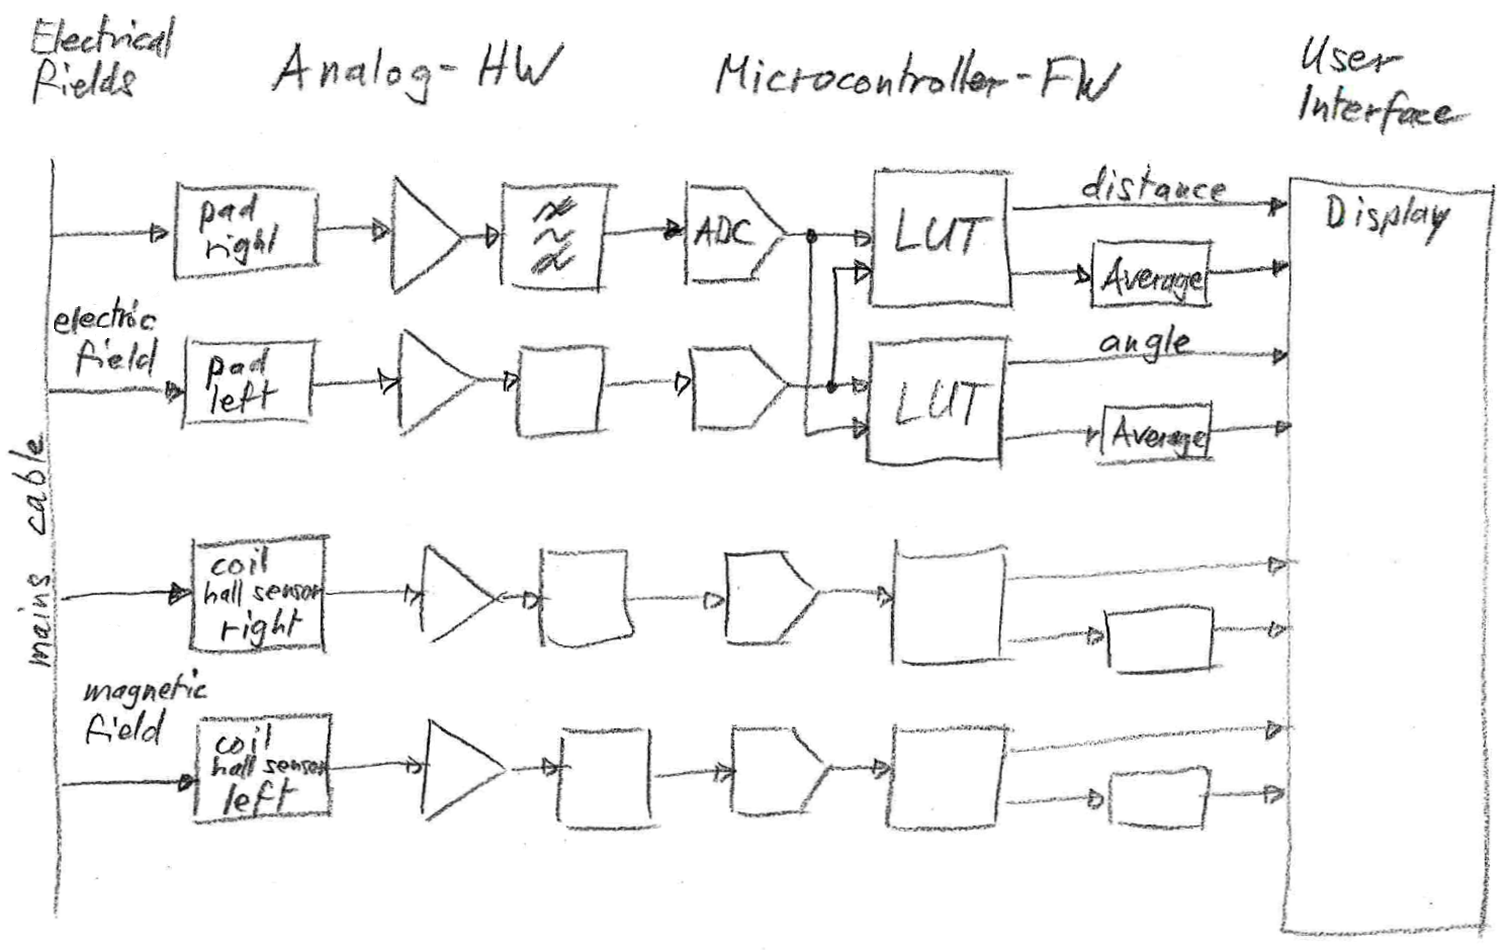 Electrical
Fields
Analog-HW
Microcontroller-FW
User
Interface
pad
right
ADC
LUT
distance
Average
Display
electric
field
pad
left
LUT
angle
Average
mains cable
coil
hall sensor
right
magnetic
field
coil
hall sensor
left